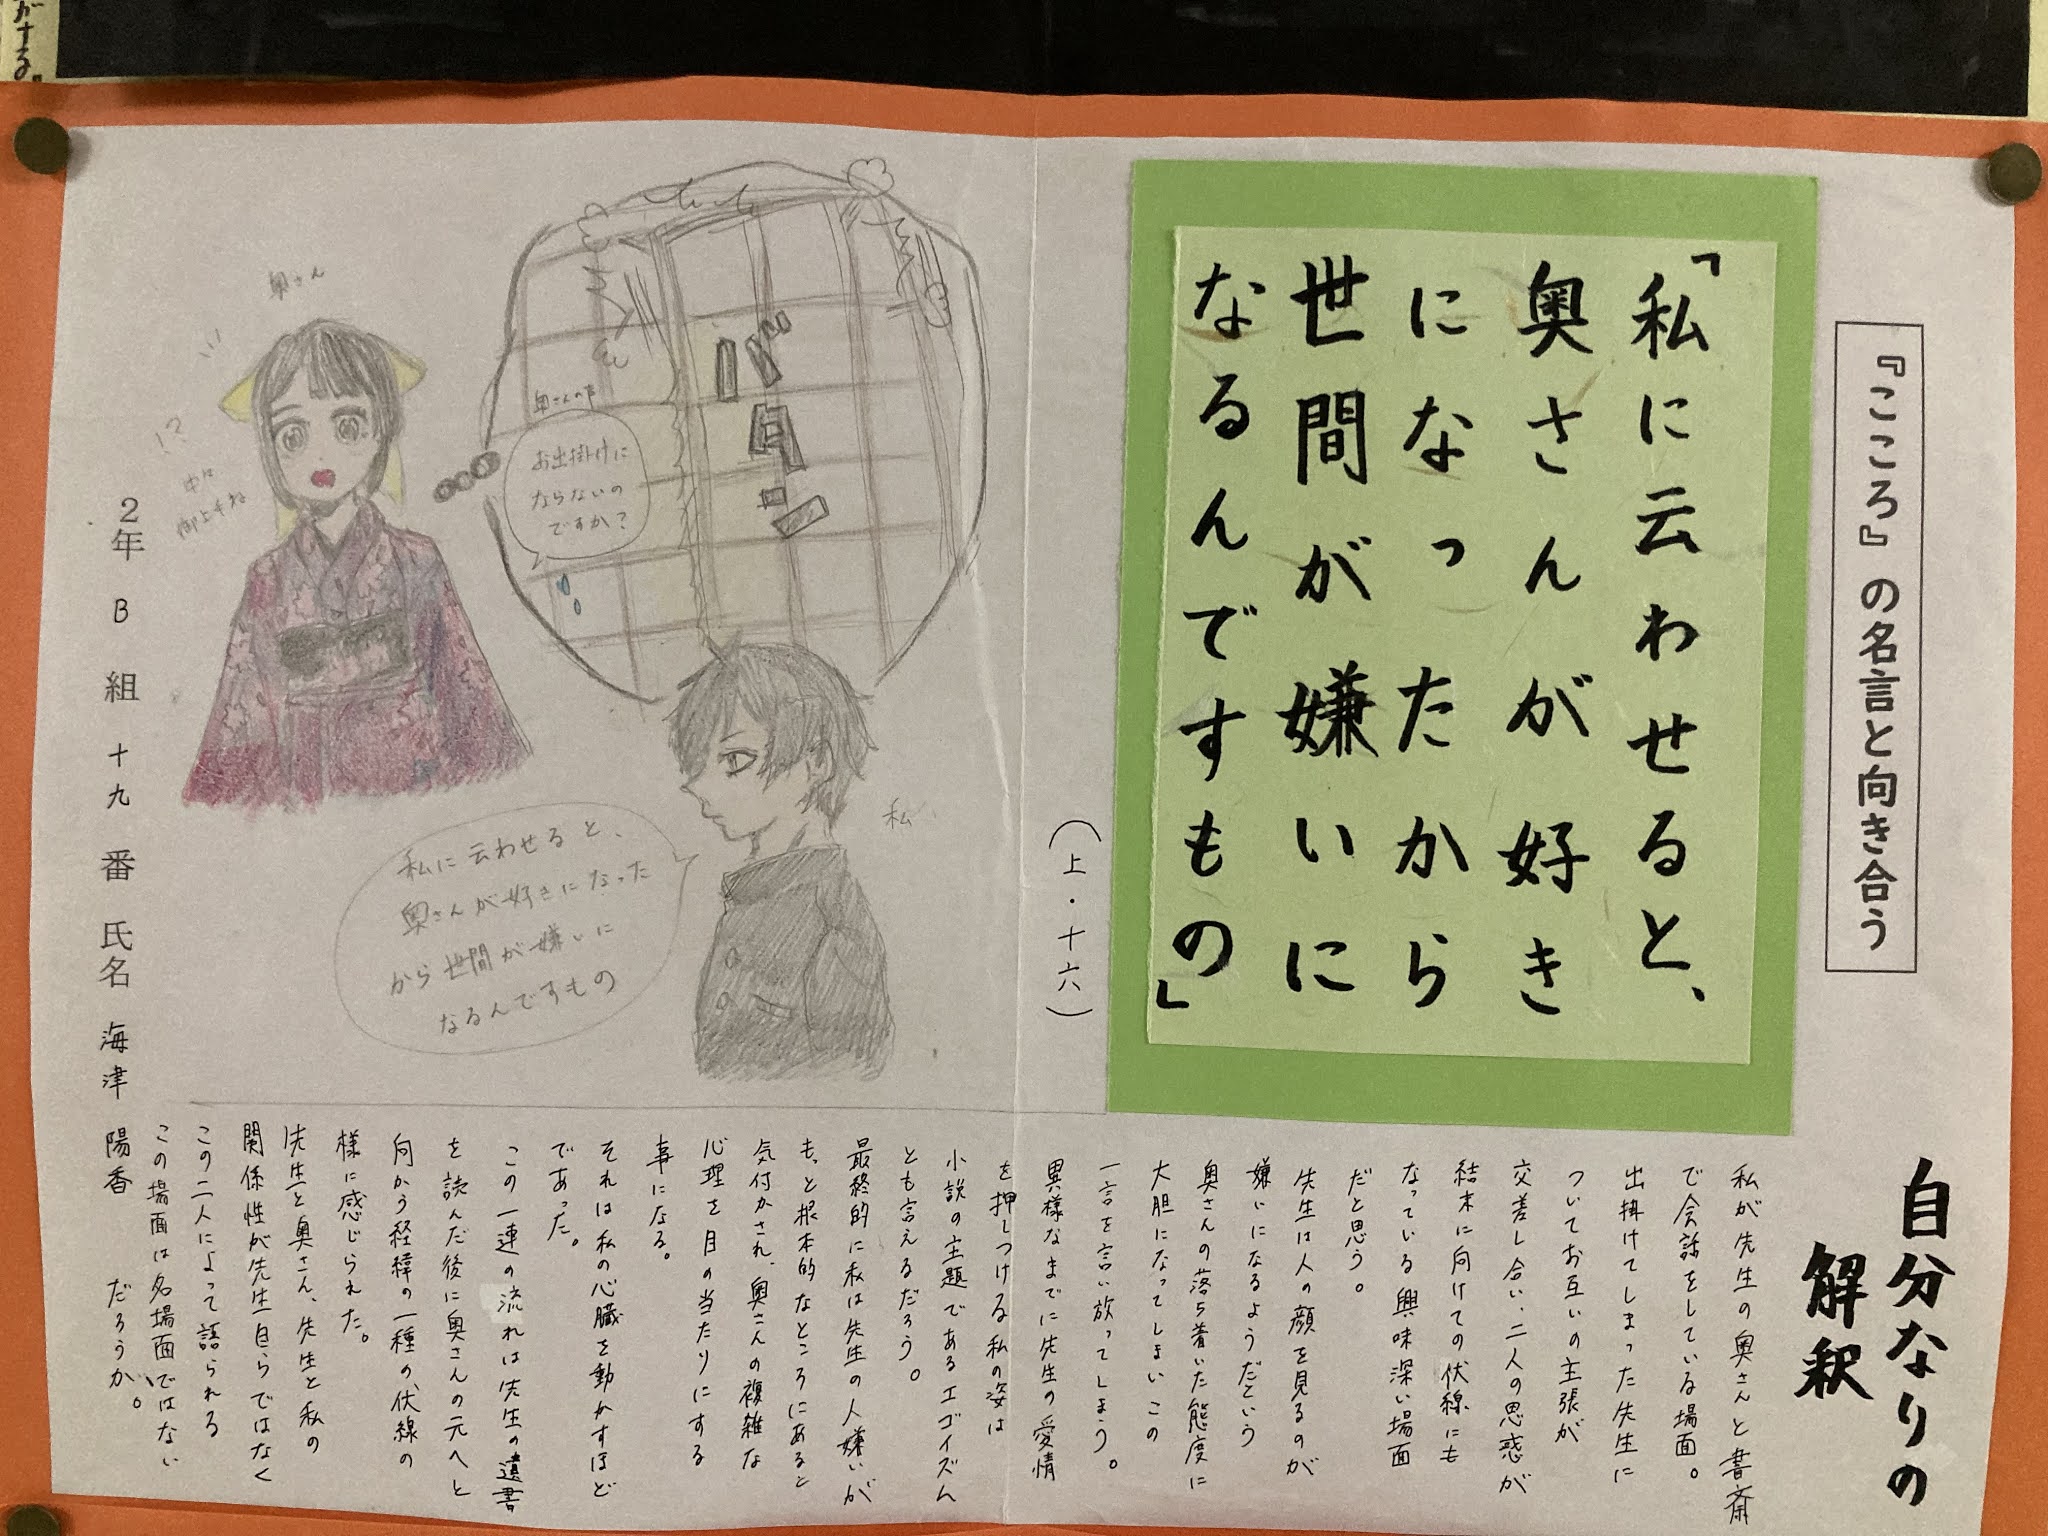 がする。
『こころ』の名言と向き合う
「私に云わせると、
奥さんが好き
になったから
世間が嫌いに
なるんですもの」
(上・十六)
奥さん
!?
お出掛けに
ならないの
ですか?
私
私に云わせると、
奥さんが好きになった
から世間が嫌いに
なるんですもの
自分なりの
解釈
私が先生の奥さんと書斎
で会話をしている場面。
出掛けてしまった先生に
ついてお互いの主張が
交差し合い、二人の思惑が
結末に向けての伏線にも
なっている興味深い場面
だと思う。
先生は人の顔を見るのが
嫌いになるようだという
奥さんの落ち着いた態度に
大胆になってしまいこの
一言を言い放ってしまう。
異様なまでに先生の愛情
を押しつける私の姿は
小説の主題であるエゴイズん
とも言えるだろう。
最終的に私は先生の人嫌いが
もっと根本的なところにあると
気付かされ、奥さんの複雑な
心理を目の当たりにする
事になる。
それは私の心臓を動かすほど
であった。
この一連の流れは先生の遺書
を読んだ後に奥さんの元へと
向かう経緯の一種の伏線の
様に感じられた。
先生と奥さん、先生と私の
関係性が先生自らではなく
この二人によって語られる
この場面は名場面ではない
だろうか。
2年 B 組 十九 番 氏名 海津 陽香